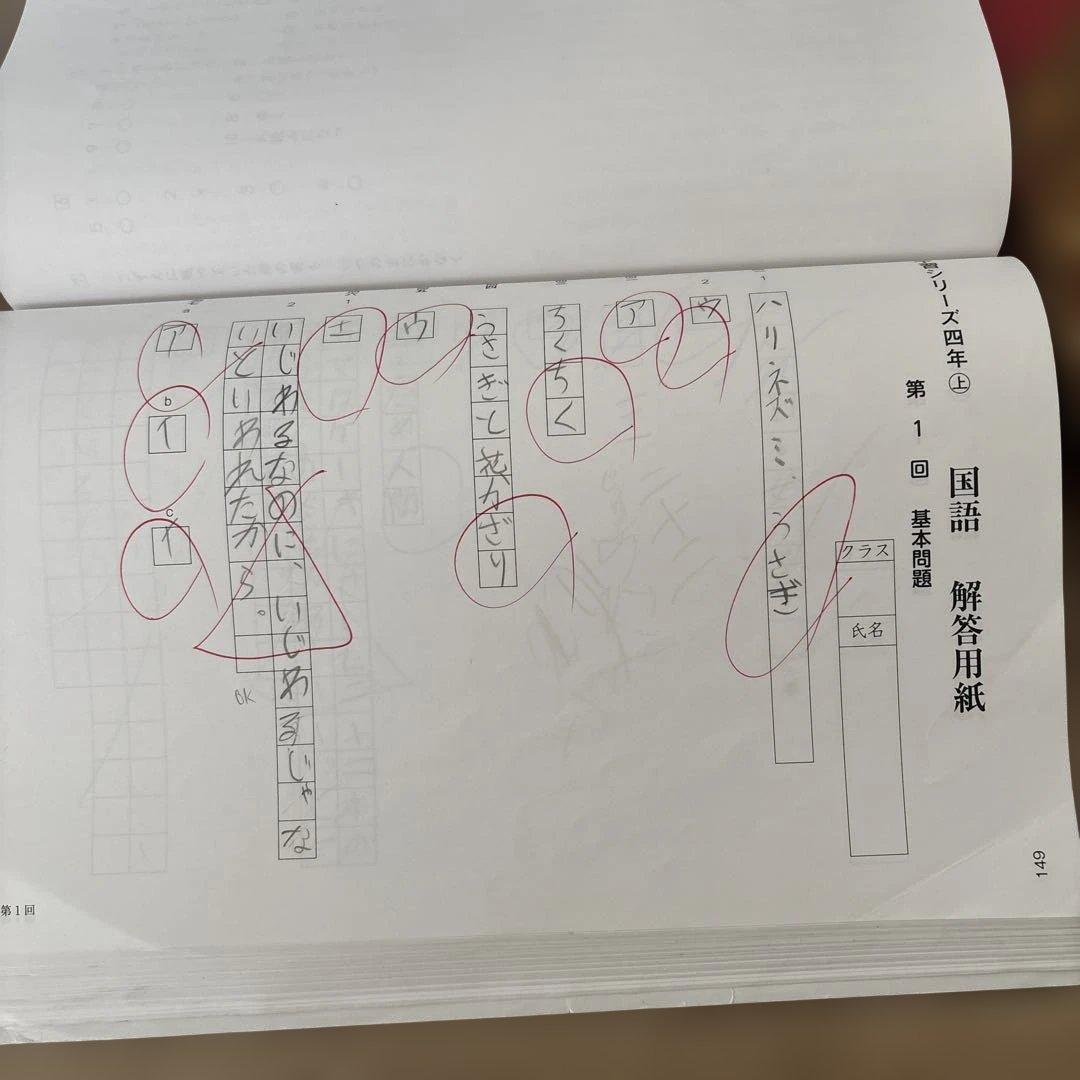 シリーズ四年上
国語 解答用紙
第1回 基本問題
クラス
氏名
1
ハリネズミ、うさぎ
2
ウ
二
ア
三
ちくちく
四
うさぎと花かざり
五
ウ
六
1
エ
2
いじわるなのに、いじわるじゃな
いといわれたから。
ア
b
イ
c
イ
149
第1回